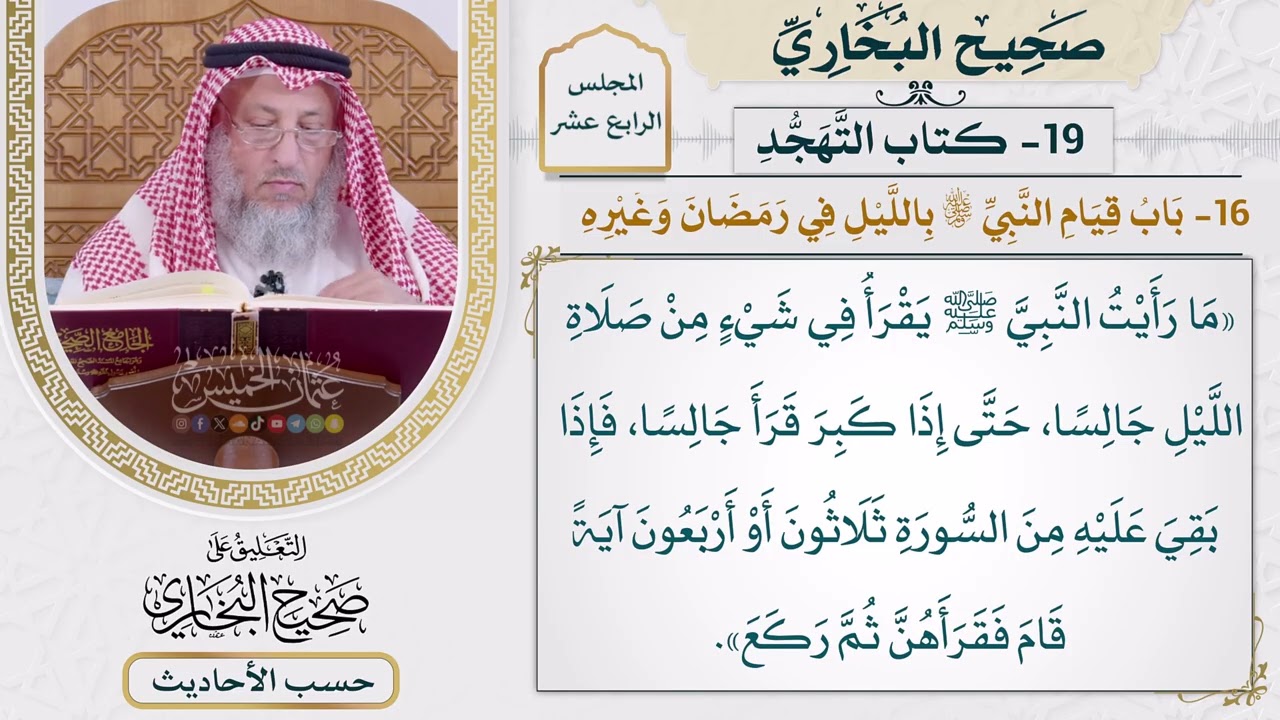 صَحِيح البُخَارِيِّ
المجلس
الرابع عشر
19- كتاب التَّهَجُّدِ
16- بَابُ قِيَامِ النَّبِيِّ ﷺ بِاللَّيْلِ فِي رَمَضَانَ وَغَيْرِهِ
«مَا رَأَيْتُ النَّبِيَّ ﷺ يَقْرَأُ فِي شَيْءٍ مِنْ صَلَاةِ
اللَّيْلِ جَالِسًا، حَتَّى إِذَا كَبِرَ قَرَأَ جَالِسًا، فَإِذَا
بَقِيَ عَلَيْهِ مِنَ السُّورَةِ ثَلَاثُونَ أَوْ أَرْبَعُونَ آيَةً
قَامَ فَقَرَأَهُنَّ ثُمَّ رَكَعَ».
الجامع الصحيح
عثمان الخميس
التعليق على
صحيح البخاري
حسب الأحاديث